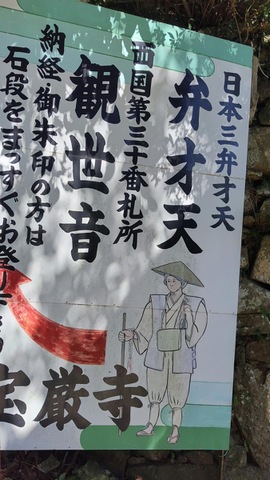 日本三弁才天
弁才天
西国第三十番札所
観世音
納経御朱印の方は
石段をまっすぐお登り下さい
宝厳寺